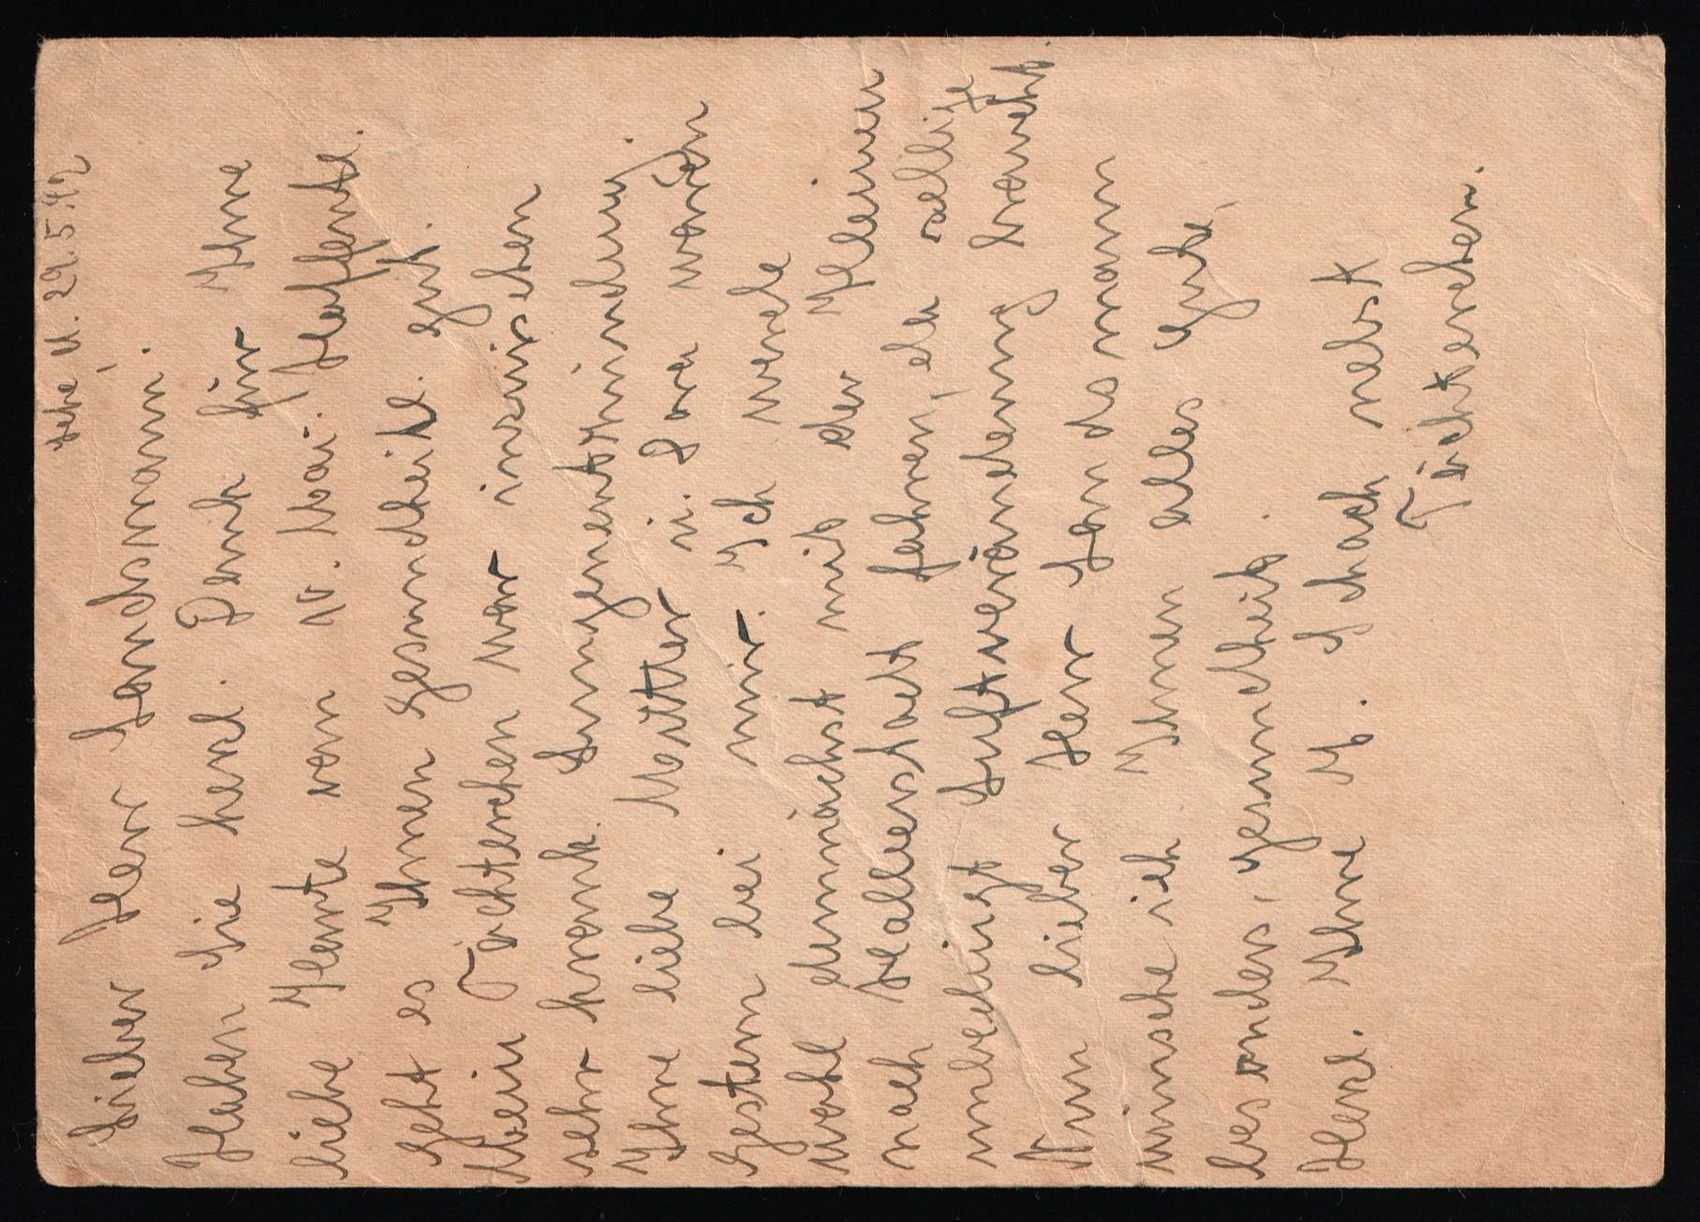 d. 29.5.42
Lieber Herr Landsmann.
Haben Sie herzl. Dank für Ihre
liebe Karte vom 10. Mai. Hoffentl.
geht es Ihnen gesundheitl. gut.
Mein Töchterchen war inzwischen
sehr krank. Lungenentzündung.
Ihre liebe Mutter u. Eva waren
gestern bei mir. Ich werde
wohl demnächst mit der Kleinen
nach Halberstadt fahren, da selbige
unbedingt Luftveränderung braucht.
Nun lieber Herr Landsmann
wünsche ich Ihnen alles Gute,
besonders Gesundheit.
Herzl. Ihre M. Schach nebst
Töchterchen.